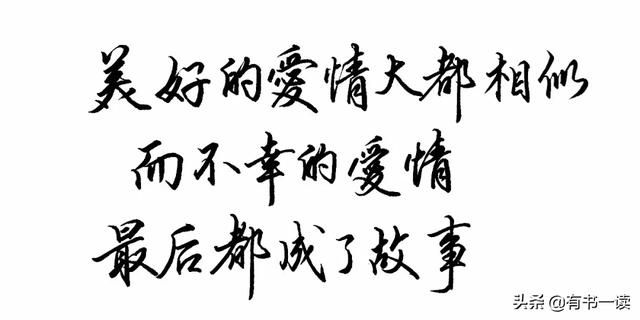 美好的愛情大都相似
而不幸的愛情
最后都成了故事
头条@有书一读